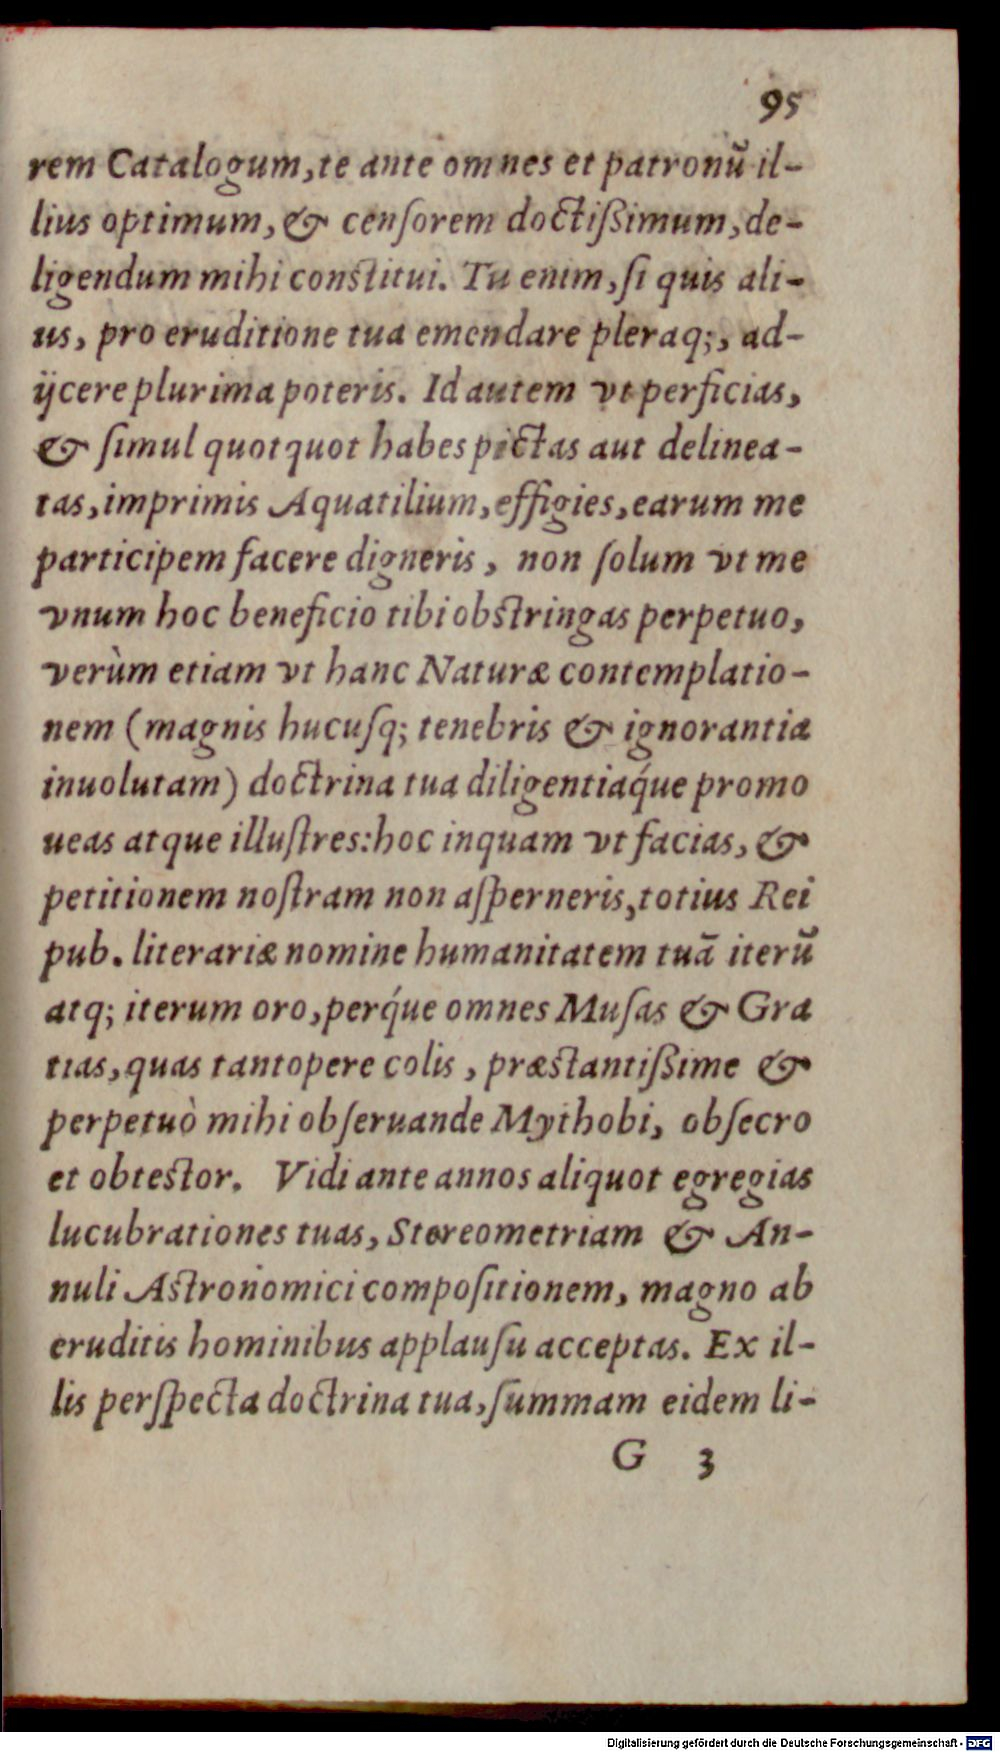 95
rem Catalogum, te ante omnes et patronũ il-
lius optimum, & cenſorem doctiſsimum, de-
ligendum mihi constitui. Tu enim, ſi quis ali-
us, pro eruditione tua emendare pleraq;, ad-
ijcere plurima poteris. Id autem vt perficias,
& ſimul quotquot habes pictas aut delinea-
tas, imprimis Aquatilium, effigies, earum me
participem facere digneris, non ſolum vt me
vnum hoc beneficio tibi obstringas perpetuo,
verùm etiam vt hanc Naturæ contemplatio-
nem (magnis hucuſq; tenebris & ignorantia
inuolutam) doctrina tua diligentiaq́ue promo
ueas atque illuſtres: hoc inquam vt facias, &
petitionem noſtram non aſperneris, totius Rei
pub. literariæ nomine humanitatem tuã iterũ
atq; iterum oro, perq́ue omnes Muſas & Gra
tias, quas tantopere colis, præstantiſsime &
perpetuò mihi obſeruande Mythobi, obſecro
et obtestor. Vidi ante annos aliquot egregias
lucubrationes tuas, Stereometriam & An-
nuli Astronomici compoſitionem, magno ab
eruditis hominibus applauſu acceptas. Ex il-
lis perſpecta doctrina tua, ſummam eidem li-
G 3
Digitalisierung gefördert durch die Deutsche Forschungsgemeinschaft - DFG